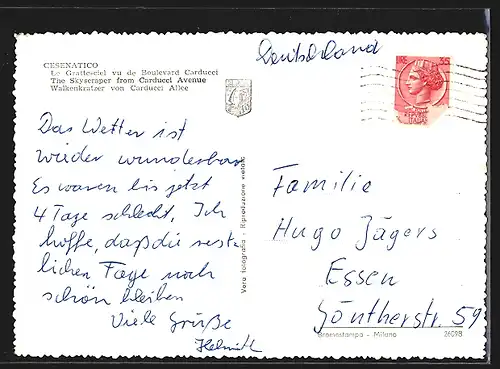 CESENATICO
Le Grattesciel vu de Boulevard Carducci
The Skyscraper from Carducci Avenue
Walkenkratzer von Carducci Allee
Deutschland
Das Wetter ist
wieder wunderbar
Es waren bis jetzt
4 Tage schlecht. Ich
hoffe, daß die rest-
lichen Tage noch
schön bleiben
Viele Grüße
Helmut
Vera fotografia - Riproduzione vietata
Familie
Hugo Jägers
Essen
Göntherstr. 59
Gromostampa - Milano
26098